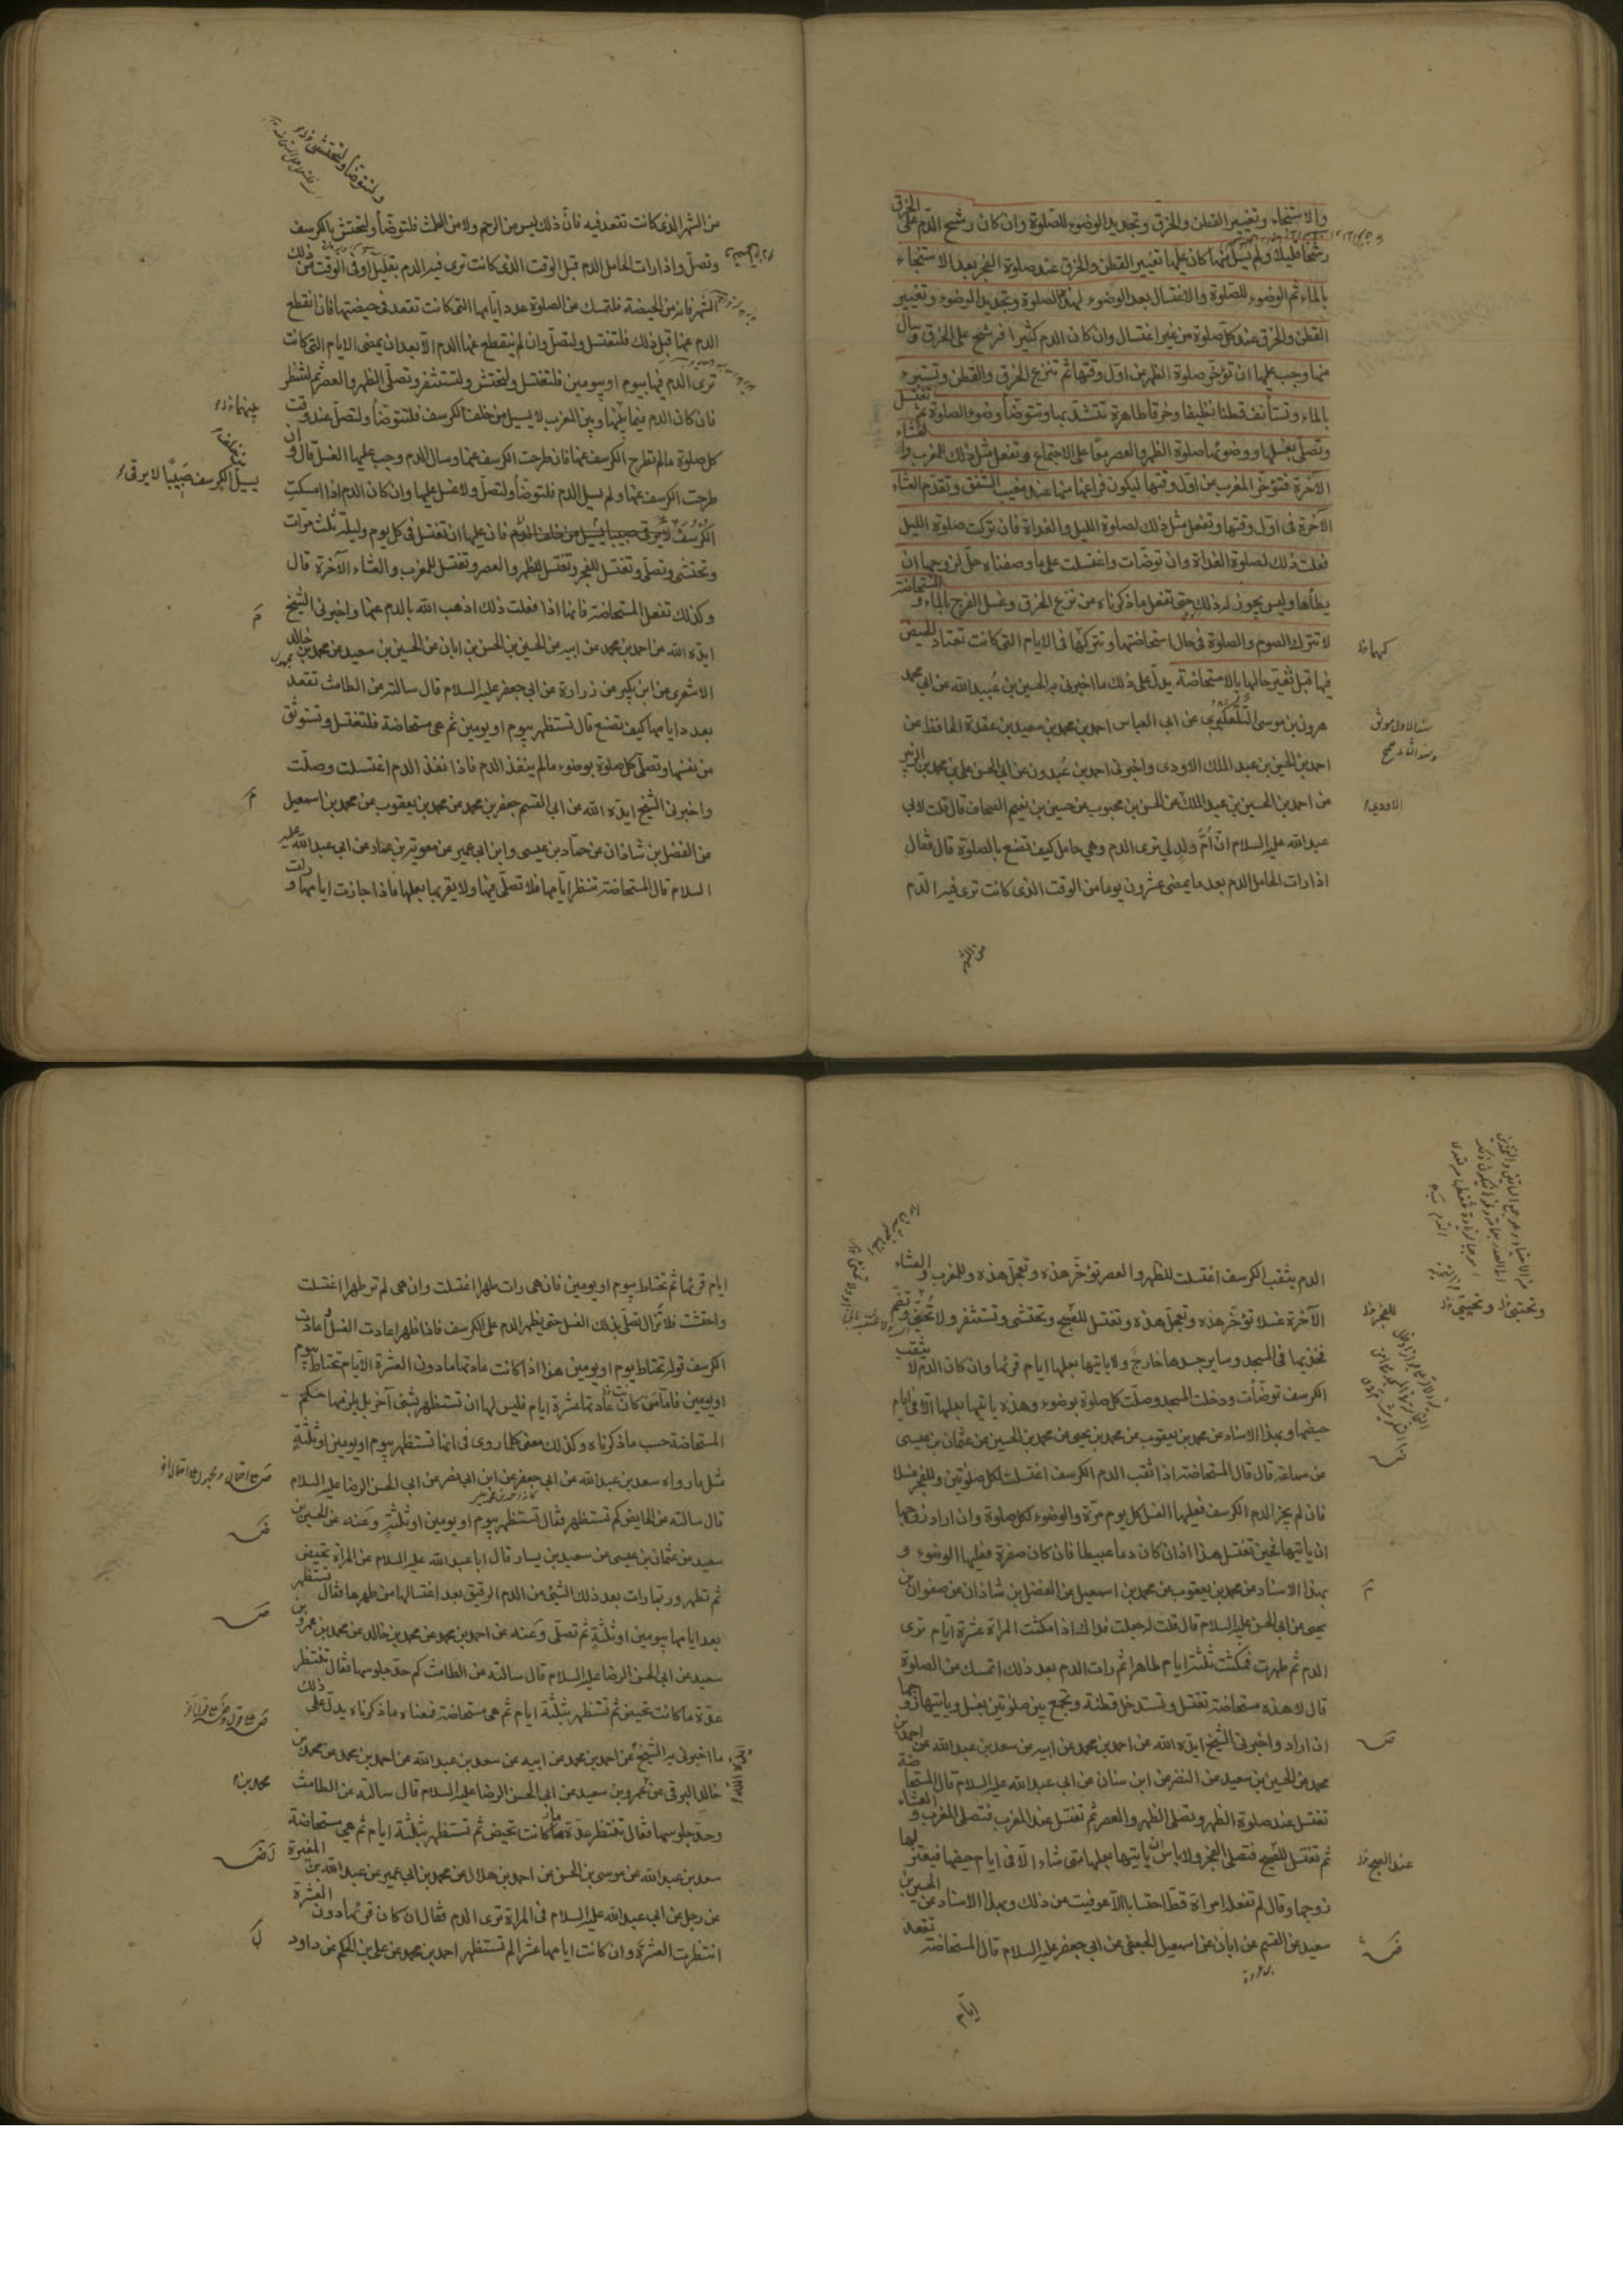 والاستنجاء وتغيير القطن والخرق وتجديد الوضوء للصلوة وان كان رشح الدم على الخرق
رشحا قليلا ولم يسل منها كان عليها تغيير القطن والخرق عند صلوة الفجر بعد الاستنجاء
بالماء ثم الوضوء للصلوة والاغتسال بعد الوضوء لهذه الصلوة وتجديد الوضوء وتغيير
القطن والخرق عند كل صلوة من غير اغتسال وان كان الدم كثيرا فرشح على الخرق وسال
منها وجب عليها ان تؤخر صلوة الظهر عن اول وقتها ثم تنزع الخرق والقطن وتستبرء
بالماء وتستأنف قطنا نظيفا وخرقا طاهرة تتشدد بها وتتوضأ وضوء الصلوة ثم تغتسل
وتصلي بغسلها ووضوئها صلوة الظهر والعصر معا على الاجتماع وتفعل مثل ذلك للمغرب والعشاء
الآخرة فتؤخر المغرب عن اول وقتها ليكون فراغها منها عند مغيب الشفق وتقدم العشاء
الآخرة في اول وقتها وتفعل مثل ذلك لصلوة الليل والغداة فان تركت صلوة الليل
فعلت ذلك لصلوة الغداة وان توضأت واغتسلت على ما وصفناه حل لزوجها ان
يطأها وليس يجوز له ذلك حتى تفعل ما ذكرناه من نزع الخرق وغسل الفرج بالماء والمستحاضة
لا تترك الصوم والصلوة في حال استحاضتها وتتركهما في الايام التي كانت تعتاد الحيض
فيها قبل تغير حالها بالاستحاضة يدل على ذلك ما اخبرني به الحسين بن عبيد الله عن ابي محمد
هرون بن موسى التلعكبري عن ابي العباس احمد بن محمد بن سعيد بن عقدة الحافظ عن
احمد بن الحسين بن عبد الملك الاودي واخبرني احمد بن عبدون عن ابي الحسن علي بن محمد بن الزبير
عن احمد بن الحسين بن عبد الملك عن الحسن بن محبوب عن حسين بن نعيم الصحاف قال قلت لابي
عبد الله عليه السلام ان ام ولد لي ترى الدم وهي حامل كيف تصنع بالصلوة قال فقال
اذا رات الحامل الدم بعد ما يمضي عشرون يوما من الوقت الذي كانت ترى فيه الدم
من الشهر
من الشهر الذي كانت تقعد فيه فان ذلك ليس من الرحم ولا من الطمث فلتتوضأ ولتحتش بالكرسف
وتصل واذا رات الحامل الدم قبل الوقت الذي كانت ترى فيه الدم بقليل او في الوقت من ذلك
الشهر فانه من الحيضة فلتمسك عن الصلوة عدد ايامها التي كانت تقعد في حيضتها فان انقطع
الدم عنها قبل ذلك فلتغتسل ولتصل وان لم ينقطع عنها الدم الا بعد ان يمضى الايام التي كانت
ترى الدم فيها بيوم او يومين فلتغتسل ولتحتش ولتستثفر وتصلي الظهر والعصر ثم لتنظر
فان كان الدم فيما بينها وبين المغرب لا يسيل من خلف الكرسف فلتتوضأ ولتصل عند وقت
كل صلوة مالم تطرح الكرسف عنها فان طرحت الكرسف عنها وسال الدم وجب عليها الغسل قال وان
طرحت الكرسف عنها ولم يسيل الدم فلتتوضأ ولتصل ولا غسل عليها وان كان الدم اذا امسكت
يسيل الكرسف صبيبا لا يرقى
الكرسف لا يرقى صبيبا يسيل من خلف الدم فان عليها ان تغتسل في كل يوم وليلة ثلث مرات
وتحتشي وتصلي وتغتسل للفجر وتغتسل للظهر والعصر وتغتسل للمغرب والعشاء الآخرة قال
وكذلك تفعل المستحاضة فانها اذا فعلت ذلك اذهب الله بالدم عنها واخبرني الشيخ
ايده الله عن احمد بن محمد عن ابيه عن الحسين بن الحسن بن ابان عن الحسين بن سعيد عن محمد بن خالد
الاشعري عن ابن بكير عن زرارة عن ابي جعفر عليه السلام قال سالته عن الطامث تقعد
بعدد ايامها كيف تصنع قال تستظهر بيوم او يومين ثم هي مستحاضة فلتغتسل وتستوثق
من نفسها وتصلي كل صلوة بوضوء مالم ينفذ الدم فاذا نفذ الدم اغتسلت وصلت
واخبرني الشيخ ايده الله عن ابي القسم جعفر بن محمد عن محمد بن يعقوب عن محمد بن اسمعيل
عن الفضل بن شاذان عن حماد بن عيسى وابن ابي عمير عن معوية بن عمار عن ابي عبد الله عليه
السلام قال المستحاضة تنظر ايامها فلا تصلي فيها ولا يقربها بعلها فاذا جازت ايامها ورات
الدم يثقب الكرسف اغتسلت للظهر والعصر تؤخر هذه وتعجل هذه وللمغرب والعشاء
الآخرة غسلا تؤخر هذه وتعجل هذه وتغتسل للصبح وتحتشي وتستثفر ولا تحني وتضم
فخذيها في المسجد وساير جسدها خارج ولا ياتيها بعلها ايام قرئها وان كان الدم لا يثقب
الكرسف توضأت ودخلت المسجد وصلت كل صلوة بوضوء وهذه ياتيها بعلها الا في ايام
حيضها وبهذا الاسناد عن محمد بن يعقوب عن محمد بن يحيى عن محمد بن الحسين عن عثمان بن عيسى
عن سماعة قال قال المستحاضة اذا ثقب الدم الكرسف اغتسلت لكل صلوتين وللفجر غسلا
فان لم يجز الدم الكرسف فعليها الغسل كل يوم مرة والوضوء لكل صلوة وان اراد زوجها
ان ياتيها فحين تغتسل هذا اذا ان كان دما عبيطا فان كان صفرة فعليها الوضوء و
بهذا الاسناد عن محمد بن يعقوب عن محمد بن اسمعيل عن الفضل بن شاذان عن صفوان بن
يحيى عن ابي الحسن عليه السلام قال قلت له جعلت فداك اذا مكثت المراة عشرة ايام ترى
الدم ثم طهرت فمكثت ثلثة ايام طاهرا ثم رات الدم بعد ذلك اتمسك عن الصلوة
قال لا هذه مستحاضة تغتسل وتستدخل قطنة وتجمع بين صلوتين بغسل وياتيها زوجها
ان اراد واخبرني الشيخ ايده الله عن احمد بن محمد عن ابيه عن سعد بن عبد الله عن احمد بن
محمد عن الحسين بن سعيد عن النضر عن ابن سنان عن ابي عبد الله عليه السلام قال المستحاضة
تغتسل عند صلوة الظهر وتصلى الظهر والعصر ثم تغتسل عند المغرب فتصلي المغرب والعشاء
ثم تغتسل للصبح فتصلي الفجر ولا باس ان ياتيها بعلها متى شاء الا في ايام حيضها فيعتزلها
عند الصبح
زوجها وقال لم تفعله امراة قط احتسابا الا عوفيت من ذلك وبهذا الاسناد عن الحسين بن
سعيد عن القسم عن ابان عن اسمعيل الجعفي عن ابي جعفر عليه السلام قال المستحاضة تقعد
ايام
ايام قرئها ثم تحتاط بيوم او يومين فان هي رات طهرا اغتسلت وان هي لم تر طهرا اغتسلت
واحتشت فلا تزال تصلي بذلك الغسل حتى يظهر الدم على الكرسف فاذا ظهر اعادت الغسل واعادت
الكرسف قوله تحتاط بيوم او يومين هذا اذا كانت عادتها مادون العشرة الايام تحتاط بيوم
او يومين فاما متى كانت عادتها عشرة ايام فليس لها ان تستظهر بشئ آخر بل يلزمها حكم
المستحاضة حسب ما ذكرناه وكذلك معنى كلما روى في انها تستظهر بيوم او يومين او ثلثة
مثل ما رواه سعد بن عبد الله عن ابي جعفر عن ابن ابي نصر عن ابي الحسن الرضا عليه السلام
قال سالته عن الحايض كم تستظهر فقال تستظهر بيوم او يومين او ثلثة وعنه عن الحسين بن
سعيد عن عثمان بن عيسى عن سعيد بن يسار قال ابا عبد الله عليه السلام عن المراة تحيض
ثم تطهر وربما رات بعد ذلك الشئ من الدم الرقيق بعد اغتسالها من طهرها فقال تستظهر
بعد ايامها بيومين او ثلثة ثم تصلي وعنه عن احمد بن محمد عن محمد بن خالد عن محمد بن عمرو بن
سعيد عن ابي الحسن الرضا عليه السلام قال سالته عن الطامث كم حد جلوسها فقال تنتظر
عدة ما كانت تحيض ثم تستظهر بثلثة ايام ثم هي مستحاضة فمعناه ما ذكرناه يدل على ذلك
ما اخبرني به الشيخ عن احمد بن محمد عن ابيه عن سعد بن عبد الله عن احمد بن محمد عن محمد بن
خالد البرقي عن عمرو بن سعيد عن ابي الحسن الرضا عليه السلام قال سالته عن الطامث
محمد بن
وحد جلوسها فقال تنتظر عدة ما كانت تحيض ثم تستظهر بثلثة ايام ثم هي مستحاضة
سعد بن عبد الله عن موسى بن الحسن عن احمد بن هلال عن محمد بن ابي عمير عن عبد الله بن المغيرة
عن رجل عن ابي عبد الله عليه السلام في المراة ترى الدم فقال ان كان قرئها دون العشرة
انتظرت العشرة وان كانت ايامها عشرا لم تستظهر احمد بن محمد عن علي بن الحكم عن داود